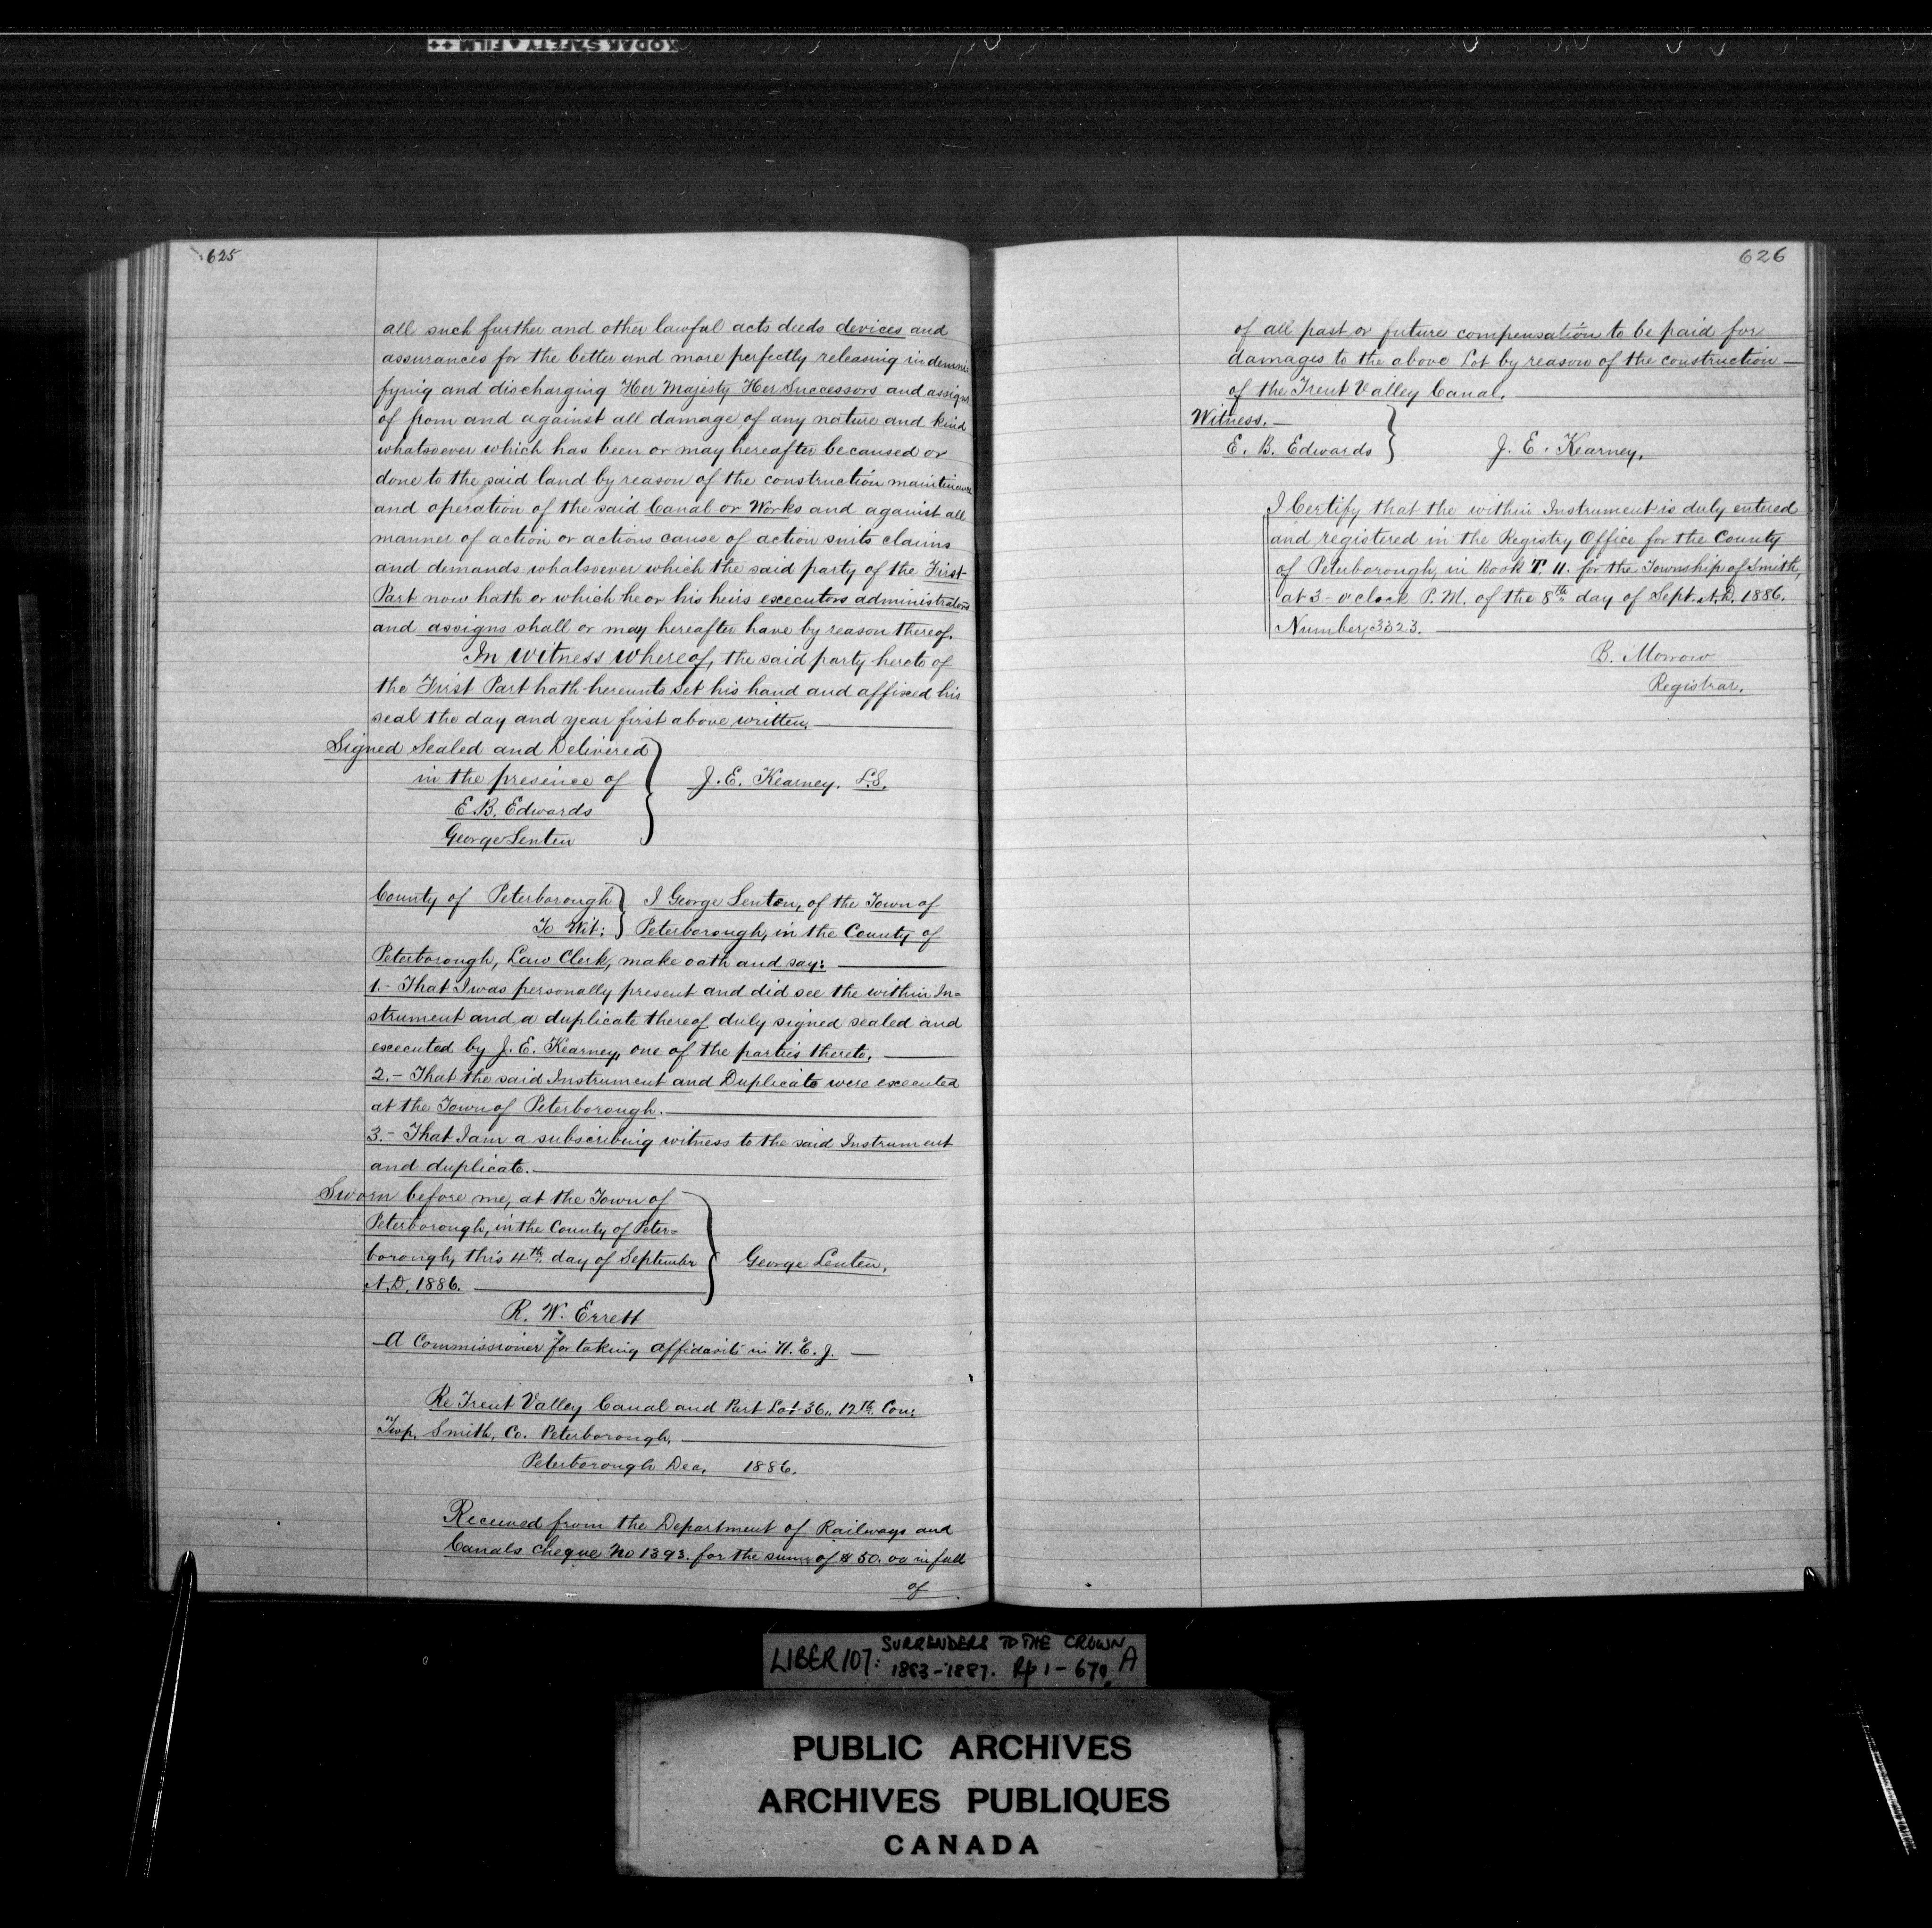 KODAK SAFETY FILM
625
all such further and other lawful acts deeds devices and
assurances for the better and more perfectly releasing indemni
fying and discharging Her Majesty Her Successors and assigns
of from and against all damage of any nature and kind
whatsoever which has been or may hereafter be caused or
done to the said land by reason of the construction maintenance
and operation of the said Canal or Works and against all
manner of action or actions cause of action suits claims
and demands whatsoever which the said party of the First
Part now hath or which he or his heirs executors administrators
and assigns shall or may hereafter have by reason thereof.
In Witness Whereof, the said party hereto of
the First Part hath hereunto set his hand and affixed his
seal the day and year first above written.
Signed Sealed and Delivered
in the presence of
J. E. Kearney. L.S.
E. B. Edwards
George Lenten
County of Peterborough } I George Lenten, of the Town of
To Wit: } Peterborough, in the County of
Peterborough, Law Clerk, make oath and say:
1.- That I was personally present and did see the within In=
strument and a duplicate thereof duly signed sealed and
executed by J. E. Kearney, one of the parties thereto.
2.- That the said Instrument and Duplicate were executed
at the Town of Peterborough.
3.- That I am a subscribing witness to the said Instrument
and duplicate.
Sworn before me, at the Town of
Peterborough, in the County of Peter=
borough, this 4th day of September
George Lenten.
A.D. 1886.
R. W. Errett
A Commissioner for taking affidavits in H.C.J.
Re Trent Valley Canal and Part Lot 36,, 12th Con:
Twp. Smith, Co. Peterborough.
Peterborough Dec. 1886.
Received from the Department of Railways and
Canals cheque No 1393. for the sum of $50.00 in full
of
626
of all past or future compensation to be paid for
damages to the above Lot by reason of the construction
of the Trent Valley Canal.
Witness.
E. B. Edwards } J. E. Kearney.
I Certify that the within Instrument is duly entered
and registered in the Registry Office for the County
of Peterborough, in Book T. 11. for the Township of Smith,
at 3 o'clock P.M. of the 8th day of Sept. A.D. 1886.
Number, 3323.
B. Morrow
Registrar.
LIBER 107: SURRENDERS TO THE CROWN
1883-1887. pp 1-679. A
PUBLIC ARCHIVES
ARCHIVES PUBLIQUES
CANADA